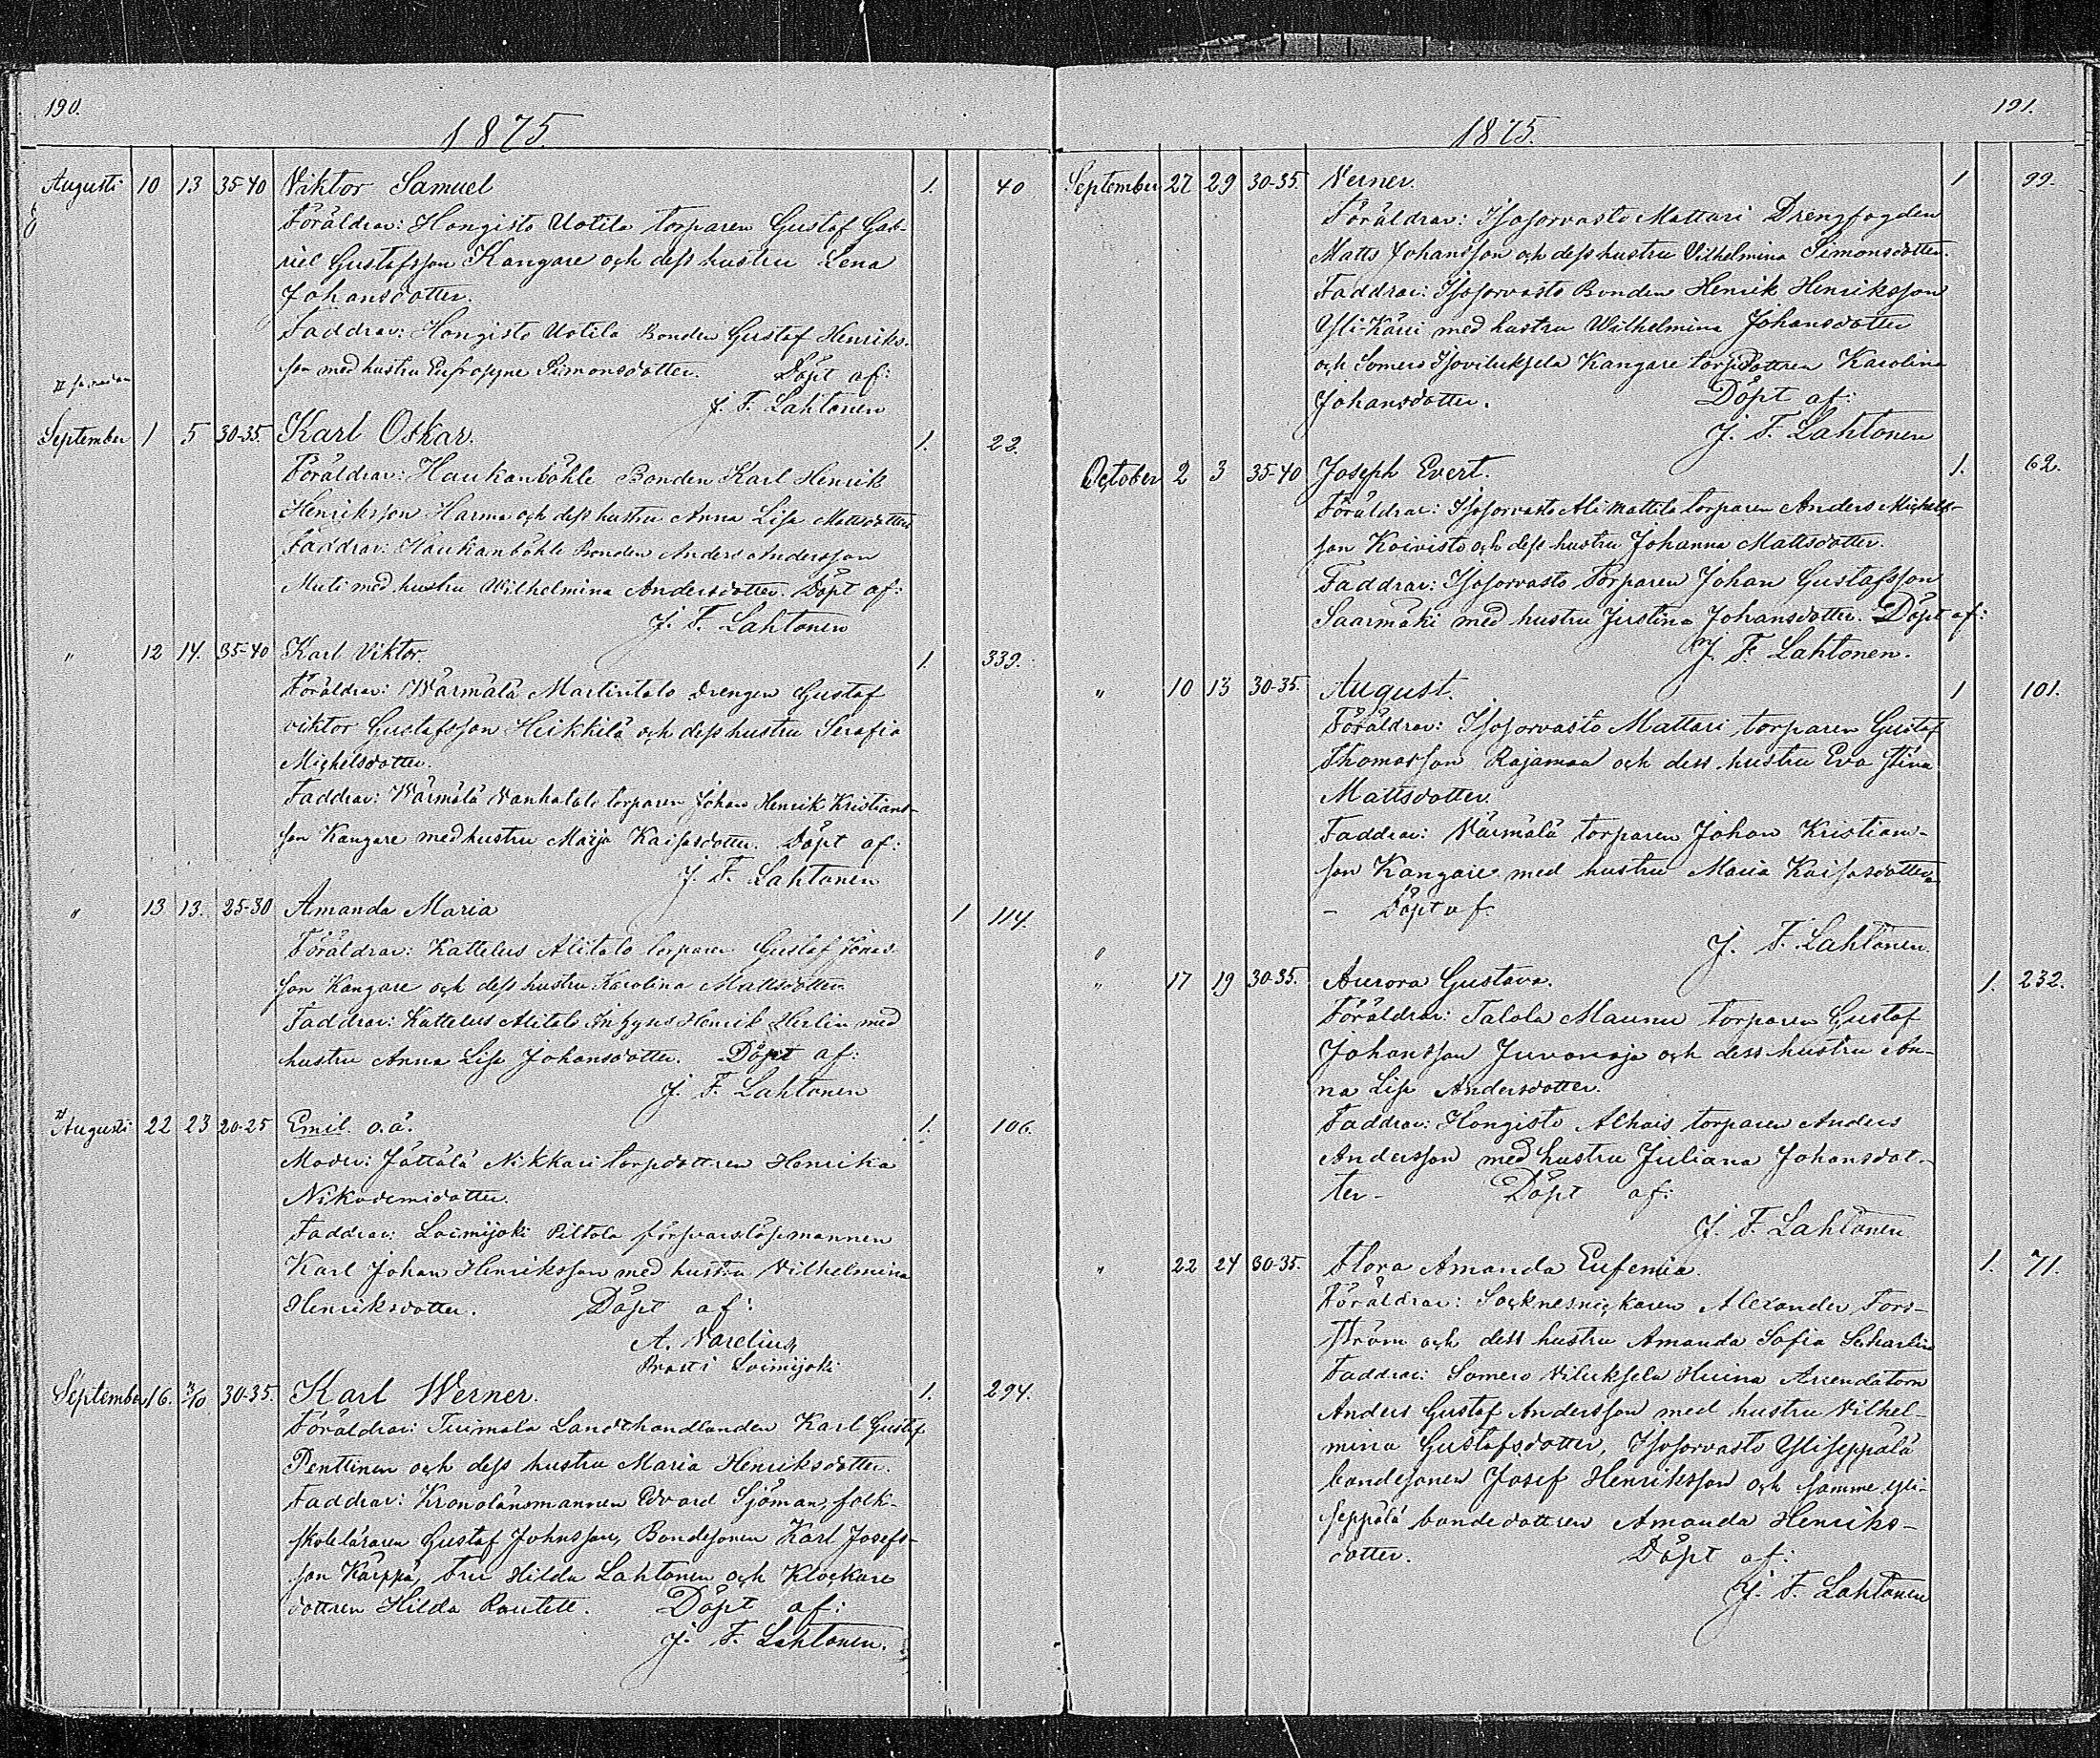 190.
1875.
Augusti 10 13 35-40 Viktor Samuel 1. 40
Föräldrar: Hongisto Uotila torparen Gustaf Gab-
riel Gustafsson Kangare och dess hustru Lena
Johansdotter.
Faddrar: Hongisto Uotila Bonden Gustaf Henriks-
son med hustru Eufrosyne Simonsdotter. Döpt af:
J. F. Lahtonen
September 1 5 30-35. Karl Oskar. 1. 22.
Föräldrar: Haukanböhle Bonden Karl Henrik
Henriksson Harma och dess hustru Anna Lisa Mattsdotter
Faddrar: Haukanböhle Bonden Anders Andersson
Muli med hustru Wilhelmina Andersdotter. Döpt af:
J. F. Lahtonen
" 12 14. 35-40 Karl Viktor. 1. 339.
Föräldrar: Wärmälä Martintalo drengen Gustaf
Viktor Gustafsson Heikkilä och dess hustru Serafia
Michelsdotter.
Faddrar: Wärmälä Vanhatalo torparen Johan Henrik Kristians-
son Kangare med hustru Maija Kaisasdotter. Döpt af:
J. F. Lahtonen
" 13 13. 25-30 Amanda Maria 1 114.
Föräldrar: Kattelus Alitalo torparen Gustaf Jonas-
son Kangare och dess hustru Karolina Mattsdotter.
Faddrar: Kattelus Alitalo Inhyses Henrik Herlin med
hustru Anna Lisa Johansdotter. Döpt af:
J. F. Lahtonen
Augusti 22 23 20-25 Emil o.ä. 1. 106.
Moder: Jättälä Nikkari torpdottren Henrika
Nikodemidotter.
Faddrar: Loimijoki Piltola
Karl Johan Henriksson med hustru Vilhelmina
Henriksdotter. Döpt af:
A. Varelius,
Prost i Loimijoki
September 16. 3/10 30-35. Karl Werner. 1. 294.
Föräldrar: Landthandlanden Karl Gustaf
Penttinen och dess hustru Maria Henriksdotter.
Faddrar: Kronolänsmannen Edvard Sjöman, folk-
skoleläraren Gustaf Johnsson, Bondesonen Karl Josefs-
son Kärppä, Fru Hilda Lahtonen och Klockare
dottren Hilda Rautell. Döpt af:
J. F. Lahtonen.
191.
1875.
September 27 29 30-35. Verner. 1 99.
Föräldrar: Isosorvasto Mattari Drengfogden
Matts Johansson och dess hustru Vilhelmina Simonsdotter.
Faddrar: Isosorvasto Bonden Henrik Henriksson
Yli-Kärri med hustru Wilhelmina Johansdotter
och Somero Kangare torpdottren Karolina
Johansdotter. Döpt af:
J. F. Lahtonen
October 2 3 35-40 Joseph Evert. 1. 62.
Föräldrar: Isosorvasto Ali Mattila torparen Anders Michels-
son Koivisto och dess hustru Johanna Mattsdotter.
Faddrar: Isosorvasto Torparen Johan Gustafsson
Saarmäki med hustru Justina Johansdotter. Döpt af:
J. F. Lahtonen.
" 10 13 30-35. August. 1 101.
Föräldrar: Isosorvasto Mattari torparen Gustaf
Thomasson Rajamaa och dess hustru Eva Stina
Mattsdotter.
Faddrar: Värmälä torparen Johan Kristians-
son Kangare med hustru Maria Kaisasdotter
- Döpt af.
J. F. Lahtonen.
" 17 19 30-35. Aurora Gustava. 1. 232.
Föräldrar: Talola Maunu torparen Gustaf
Johansson Juvanoja och dess hustru An-
na Lisa Andersdotter.
Faddrar: Hongisto Alhais torparen Anders
Andersson med hustru Juliana Johansdot-
ter- Döpt af:
J. F. Lahtonen
" 22 24 30-35. Flora Amanda Eufemia. 1. 71.
Föräldrar: Socknesnickaren Alexander Fors-
ström och dess hustru Amanda Sofia Scharlin
Faddrar: Somero Viluksela Huina Arrendatorn
Anders Gustaf Andersson med hustru Vilhel-
mina Gustafsdotter, Isosorvasto Yliseppälä
bondesonen Josef Henriksson och samma yli-
seppälä bondedottren Amanda Henriks-
dotter. Döpt af:
J. F. Lahtonen